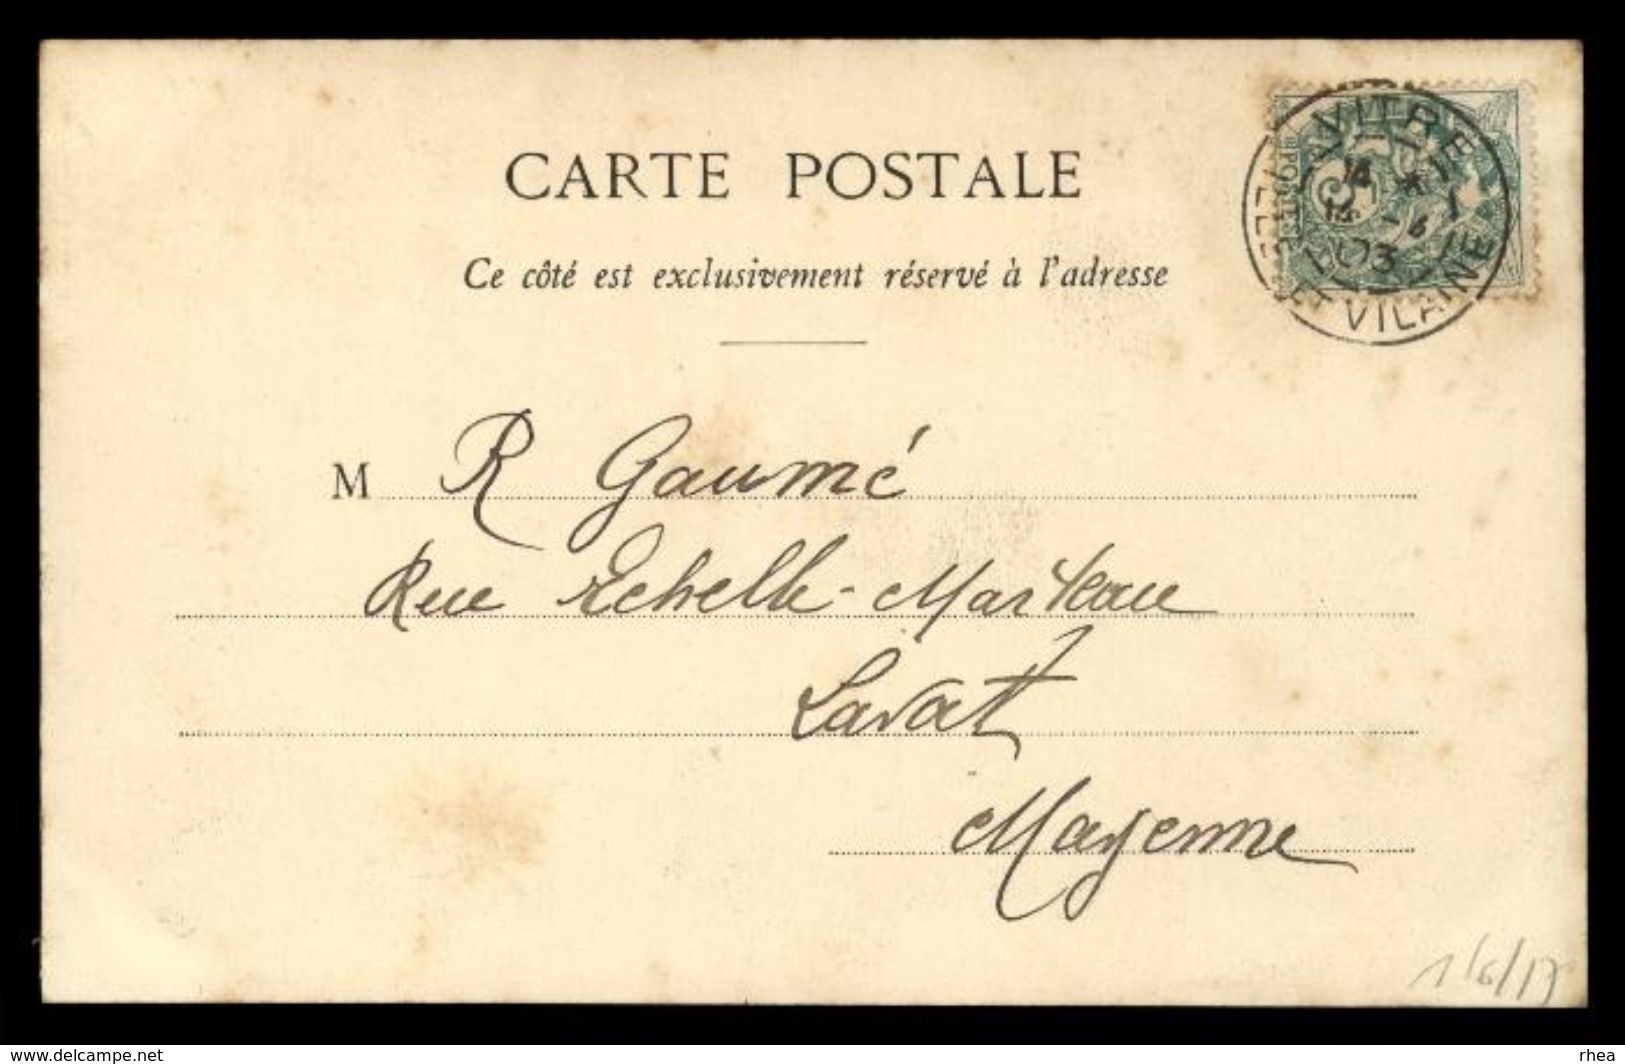 CARTE POSTALE
Ce côté est exclusivement réservé à l'adresse
VITRE
ILLE ET VILAINE
M R Gaumé
Rue Echelle-Marteau
Laval
Mayenne
1/6/17
https://www.delcampe.net
rhea